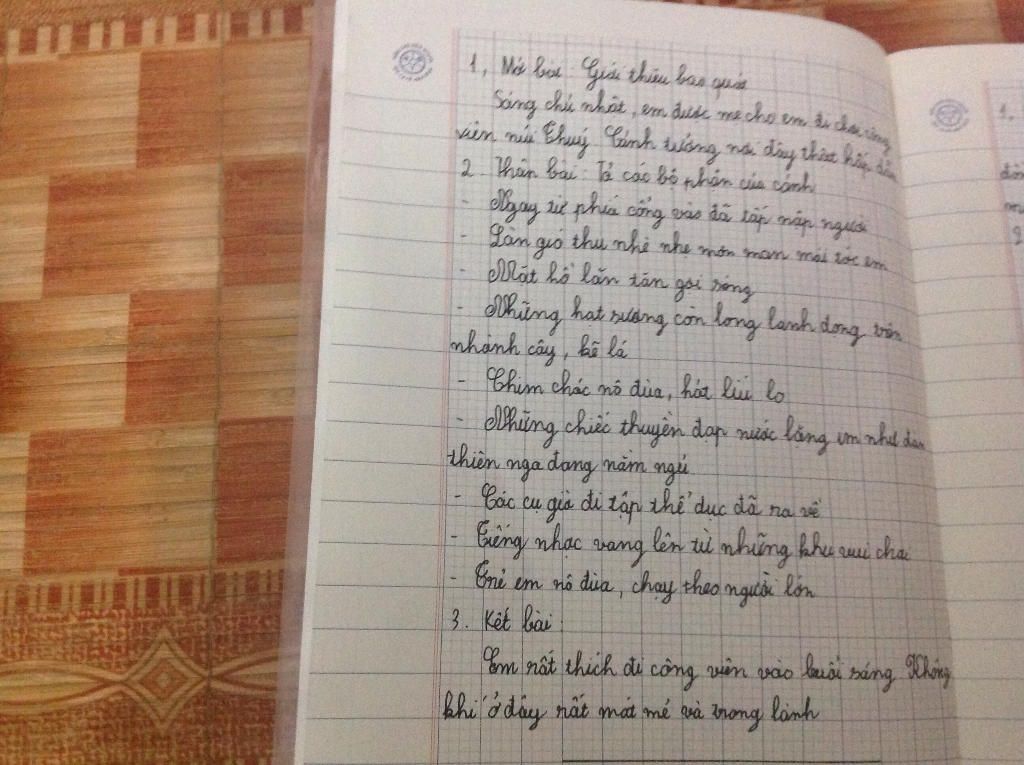 1, Mở bài: Giới thiệu bao quát
Sáng chủ nhật, em được mẹ cho em đi chơi công
viên núi Thuý. Cảnh tượng nơi đây thật hấp dẫn
2. Thân bài: Tả các bộ phận của cảnh
- Ngay từ phía cổng vào đã tấp nập người
- Làn gió thu nhè nhẹ mơn man mái tóc em
- Mặt hồ lăn tăn gợi sóng
- Những hạt sương còn long lanh đọng trên
nhánh cây, kẽ lá
- Chim chóc nô đùa, hót líu lo
- Những chiếc thuyền đạp nước lặng im như đàn
thiên nga đang nằm ngủ
- Các cụ già đi tập thể dục đã ra về
- Tiếng nhạc vang lên từ những khu vui chơi
- Trẻ em nô đùa, chạy theo người lớn
3. Kết bài:
Em rất thích đi công viên vào buổi sáng. Không
khí ở đây rất mát mẻ và trong lành
1,
2